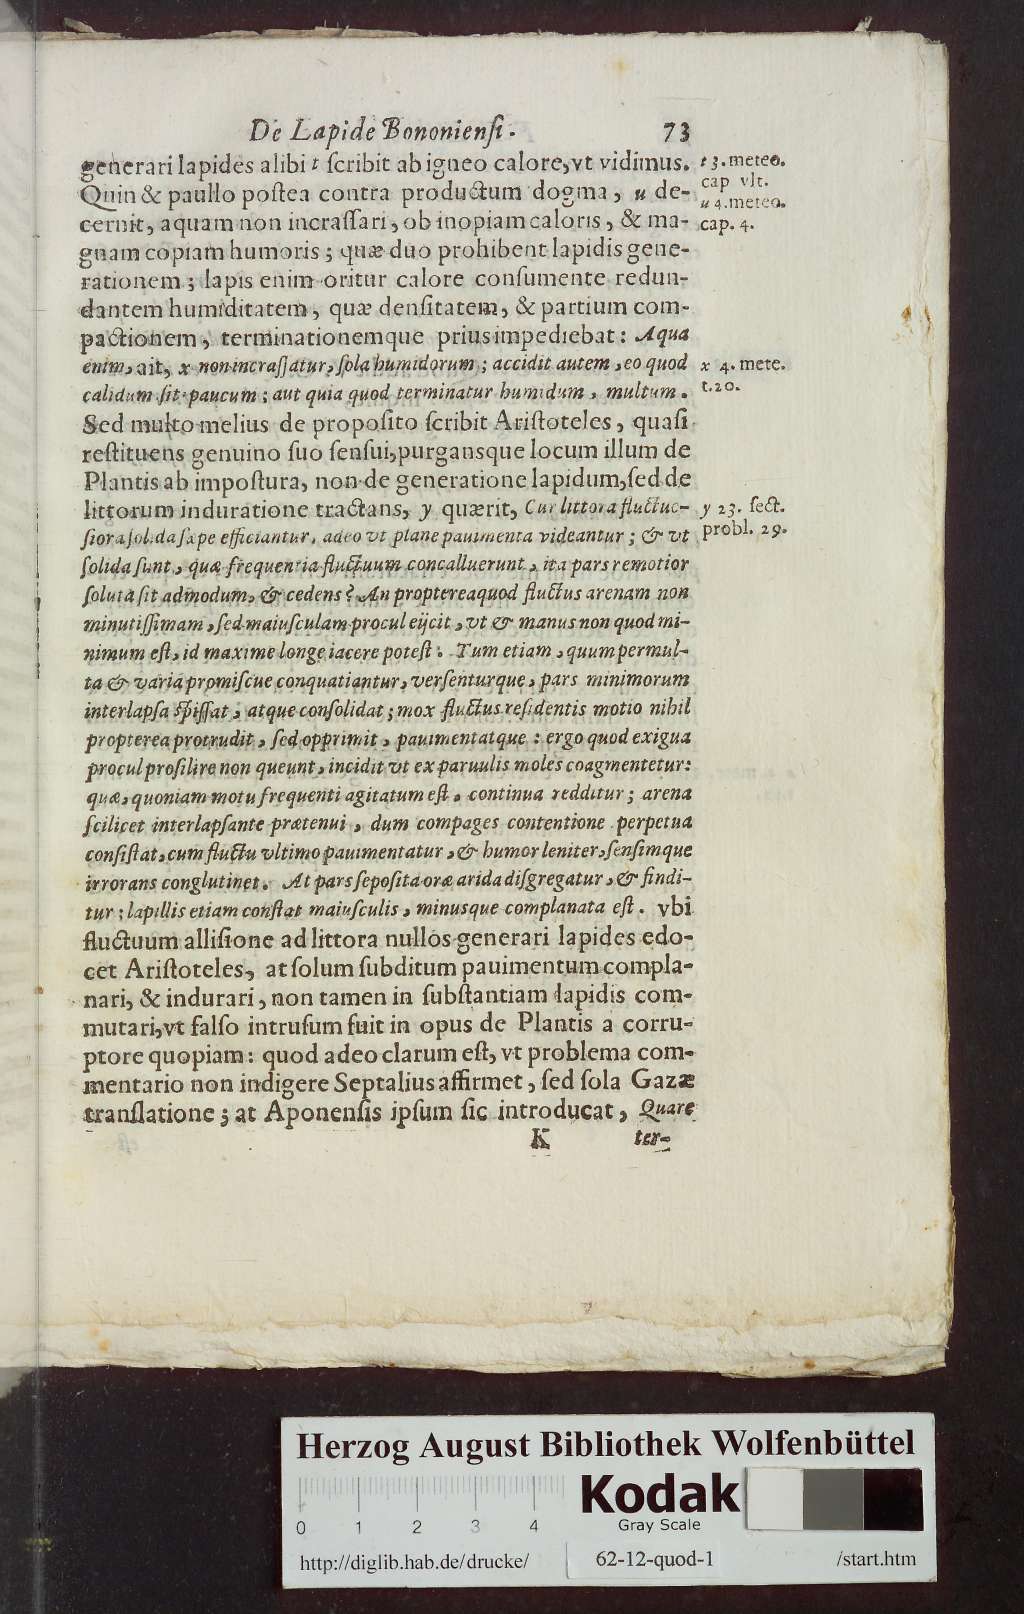 De Lapide Bononiensi. 73
generari lapides alibi t scribit ab igneo calore, vt vidimus.
Quin & paullo postea contra productum dogma, u de-
cernit, aquam non incrassari, ob inopiam caloris, & ma-
gnam copiam humoris; quæ duo prohibent lapidis gene-
rationem; lapis enim oritur calore consumente redun-
dantem humiditatem, quæ densitatem, & partium com-
pactionem, terminationemque prius impediebat: Aqua
enim, ait, x non incrassatur, sola humidorum; accidit autem, eo quod
calidum sit paucum; aut quia quod terminatur humidum, multum.
Sed multo melius de proposito scribit Aristoteles, quasi
restituens genuino suo sensui, purgansque locum illum de
Plantis ab impostura, non de generatione lapidum, sed de
littorum induratione tractans, y quærit, Cur littora fluctuc-
siora solida sæpe efficiantur, adeo vt plane pauimenta videantur; & vt
solida sunt, quæ frequentia fluctuum concalluerunt, ita pars remotior
soluta sit admodum, & cedens? An proptereaquod fluctus arenam non
minutissimam, sed maiusculam procul eijcit, vt & manus non quod mi-
nimum est, id maxime longe iacere potest. Tum etiam, quum permul-
ta & varia promiscue conquatiantur, versenturque, pars minimorum
interlapsa spissat, atque consolidat; mox fluctus residentis motio nihil
propterea protrudit, sed opprimit, pauimentatque: ergo quod exigua
procul prosilire non queunt, incidit vt ex paruulis moles coagmentetur:
quæ, quoniam motu frequenti agitatum est, continua redditur; arena
scilicet interlapsante prætenui, dum compages contentione perpetua
consistat, cum fluctu vltimo pauimentatur, & humor leniter, sensimque
irrorans conglutinet. At pars seposita oræ arida disgregatur, & findi-
tur; lapillis etiam constat maiusculis, minusque complanata est. vbi
fluctuum allisione ad littora nullos generari lapides edo-
cet Aristoteles, at solum subditum pauimentum compla-
nari, & indurari, non tamen in substantiam lapidis com-
mutari, vt falso intrusum fuit in opus de Plantis a corru-
ptore quopiam: quod adeo clarum est, vt problema com-
mentario non indigere Septalius affirmet, sed sola Gazæ
translatione; at Aponensis ipsum sic introducat, Quare
K ter-
t 3. meteo.
cap vlt.
u 4. meteo.
cap. 4.
x 4. mete.
t. 20.
y 23. sect.
probl. 29.
Herzog August Bibliothek Wolfenbüttel
Kodak
Gray Scale
0 1 2 3 4
http://diglib.hab.de/drucke/ 62-12-quod-1 /start.htm